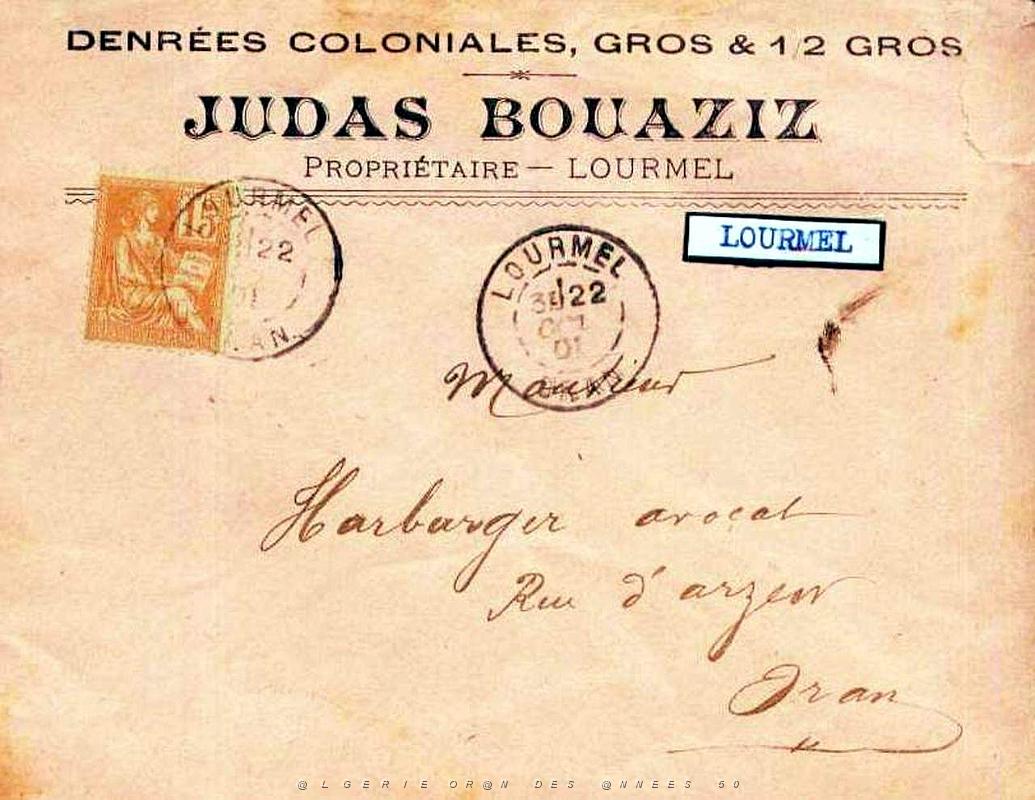 DENRÉES COLONIALES, GROS & 1/2 GROS
JUDAS BOUAZIZ
PROPRIÉTAIRE — LOURMEL
15
LOURMEL
22
01
RAN
LOURMEL
3E/22
OCT
01
ORAN
LOURMEL
Monsieur
Harburger avocat
Rue d'arzew
Oran
@LGERIE OR@N DES @NNEES 50